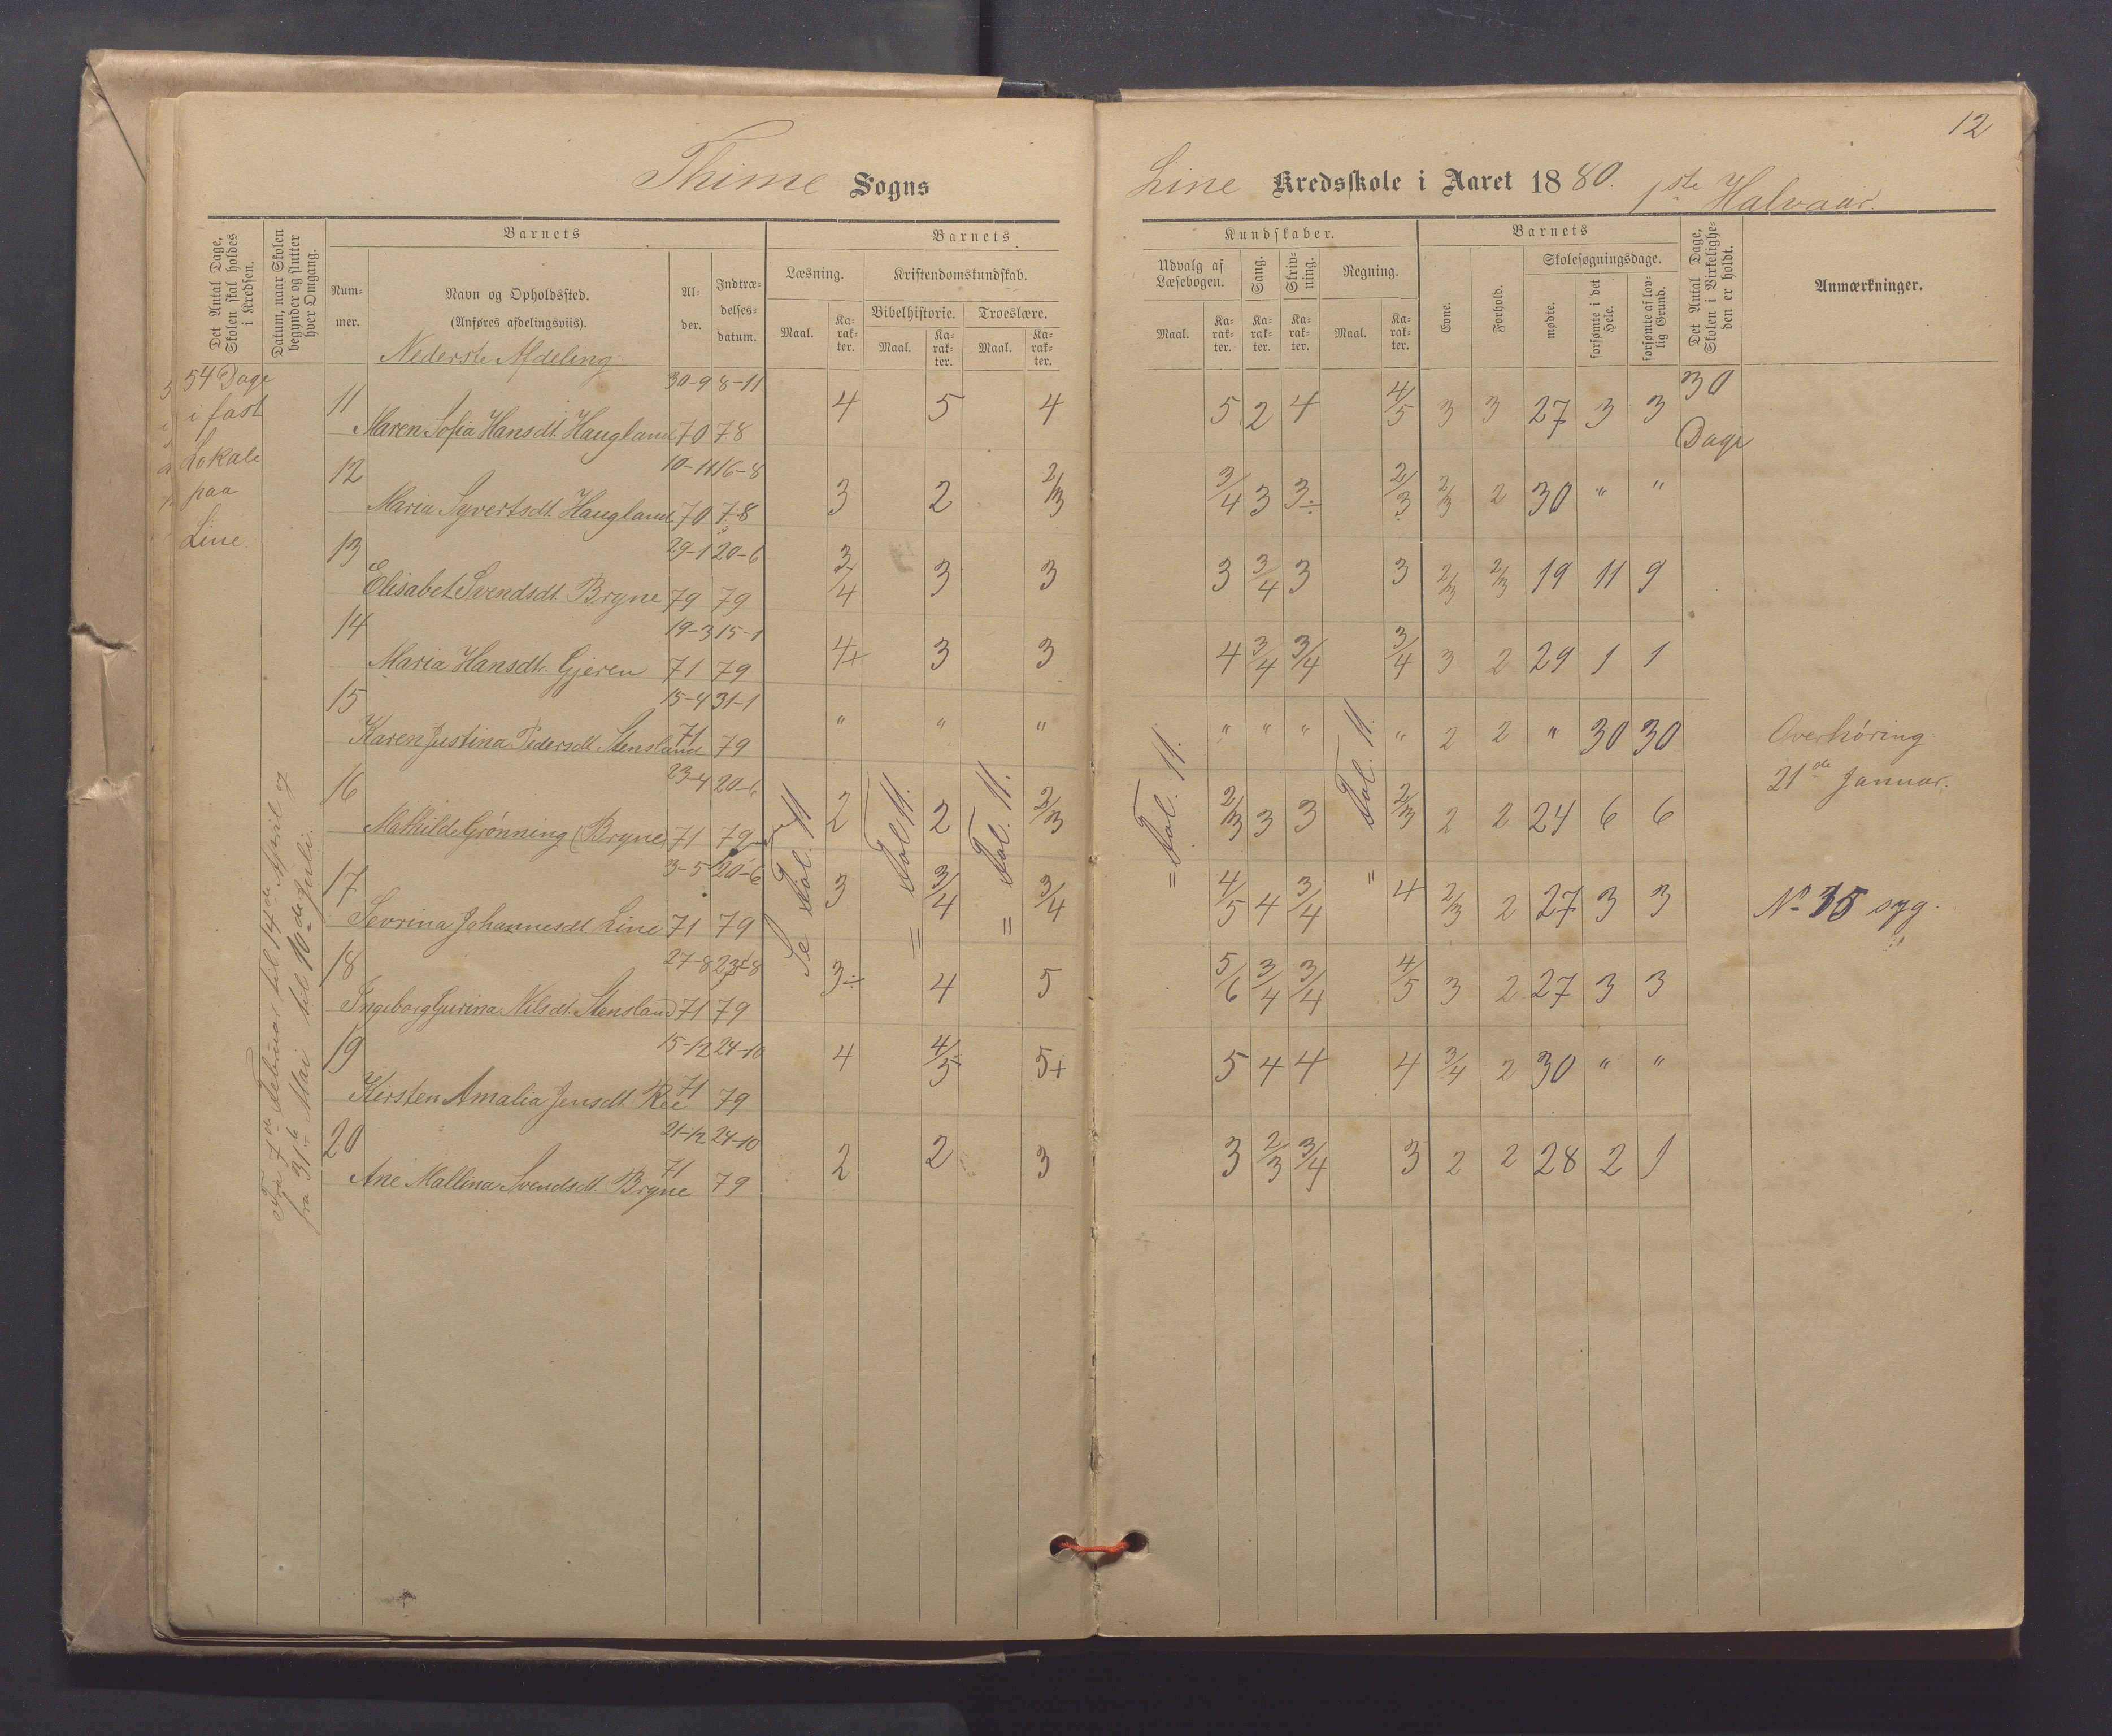 12
Thime Sogns
Line Kredsskole i Aaret 1880. 1ste Halvaar.
Det Antal Dage, Skolen skal holdes i Kredsen.
Datum, naar Skolen begynder og slutter hver Omgang.
Barnets
Num-
mer.
Navn og Opholdssted.
(Anføres afdelingsviis).
Nederste Afdeling
Al-
der.
Indtræ-
delses-
datum.
Barnets
Læsning.
Maal.
Ka-
rak-
ter.
Kristendomskundskab.
Bibelhistorie.
Maal.
Ka-
rak-
ter.
Troeslære.
Maal.
Ka-
rak-
ter.
Kundskaber.
Udvalg af
Læsebogen.
Maal.
Ka-
rak-
ter.
Sang.
Ka-
rak-
ter.
Skriv-
ning.
Ka-
rak-
ter.
Regning.
Maal.
Ka-
rak-
ter.
Barnets
Evne.
Forhold.
Skolesøgningsdage.
mødte.
forsømte i det Hele.
forsømte af lov-
lig Grund.
Det Antal Dage, Skolen i Virkelighe-
den er holdt.
Anmærkninger.
54 Dage
i fast
Lokale
paa
Line.
Fra 7de Februar til 14de April og
fra 31te Mai til 10de Juli.
11 Maren Sofia Hansdt. Haugland 30-9 70 8-11 78 4 5 4 5 2 4 4/5 3 3 27 3 3 30 Dage
12 Maria Syvertsdt. Haugland 10-11 70 16-8 78 3 2 2/3 3/4 3 3÷ 2/3 2/3 2 30 " "
13 Elisabet Svendsdt. Bryne 29-1 79 20-6 79 3/4 3 3 3 3/4 3 3 2/3 2/3 19 11 9
14 Maria Hansdtr. Gjeren 19-3 71 15-1 79 4+ 3 3 4 3/4 3/4 3/4 3 2 29 1 1
15 Karen Justina Pedersdt. Stensland 15-4 71 31-1 79 " " " " " " " 2 2 " 30 30
16 Mathilde Grønning (Bryne) 23-4 71 20-6 79 2 2 2/3 2/3 3 3 2/3 2 2 24 6 6
17 Sevrina Johannesdt. Line 3-5 71 20-6 79 3 3/4 3/4 4/5 4 3/4 4 2/3 2 27 3 3
18 Ingeborg Gurina Nilsdt. Stensland 27-8 71 23-8 79 3÷ 4 5 5/6 3/4 3/4 4/5 3 2 27 3 3
19 Kirsten Amalia Jensdt. Ree 15-12 71 24-10 79 4 4/5 5+ 5 4 4 4 3/4 2 30 " "
20 Ane Mallina Svendsdt. Bryne 21-12 71 24-10 79 2 2 3 3 2/3 3/4 3 2 2 28 2 1
Se Fol. 11
= Fol. 11.
= Fol. 11.
= Fol. 11.
" Fol. 11.
Overhøring
21de Januar.
No 15 syg.